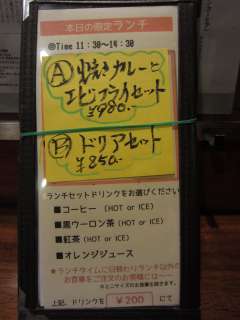 本日の限定ランチ
◎Time 11:30~14:30
Ⓐ 焼きカレーと
エビフライセット
¥980.-
Ⓑ ドリアセット
¥850.-
ランチセットドリンクをお選びください
■コーヒー (HOT or ICE)
■黒ウーロン茶 (HOT or ICE)
■紅茶 (HOT or ICE)
■オレンジジュース
★ランチタイムに日替わりランチ以外の
お食事をご注文のお客様には～
上記、ドリンクを ¥200 にて